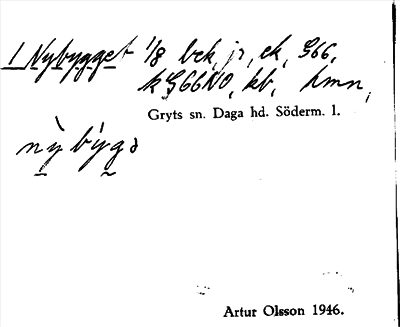 1 Nybygget 1/8 bek, jr, ek, G66,
k G66NO, kb, hmn,
Gryts sn. Daga hd. Söderm. l.
nỳbýgə
Artur Olsson 1946.